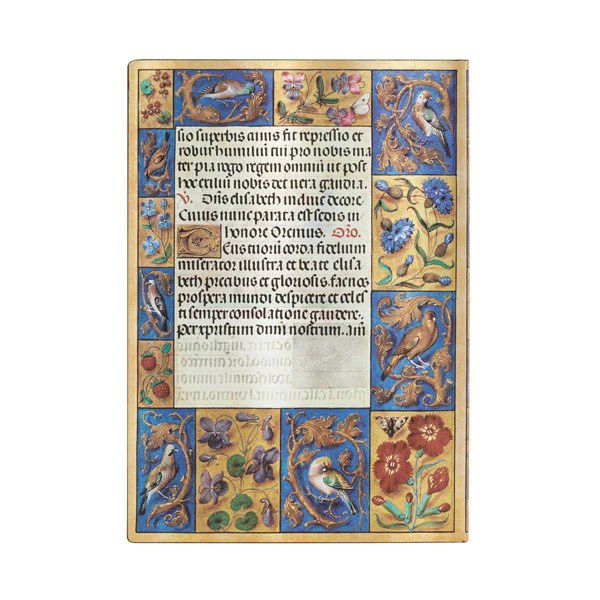 sio superbis anus fit repressio et
robur humiliū cui pro nobis ma
ter pia rogo regem omniū ut post
hoc exiliū nobis det vera gaudia.
V. Dn̄s elisabeth induit decore
Cuius nunc parata est sedis in
honore Oremus. Oro.
Deus tuorū corda fidelium
miserator illustra et beate elisa
beth precibus et gloriosis fac nos
prospera mundi despicere et celes
ti semper consolatione gaudere.
Per xpistum dnm nostrum. am